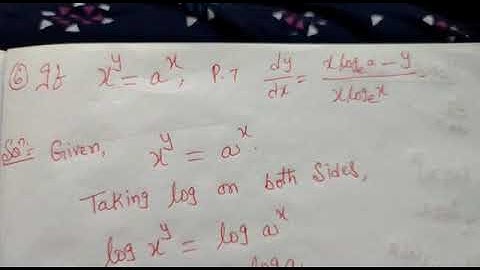 ⑥ If x^y = a^x, P.T dy/dx = (x log_e a - y)/(x log_e x).
Sol^n: Given, x^y = a^x.
Taking log on both Sides,
log x^y = log a^x
log a